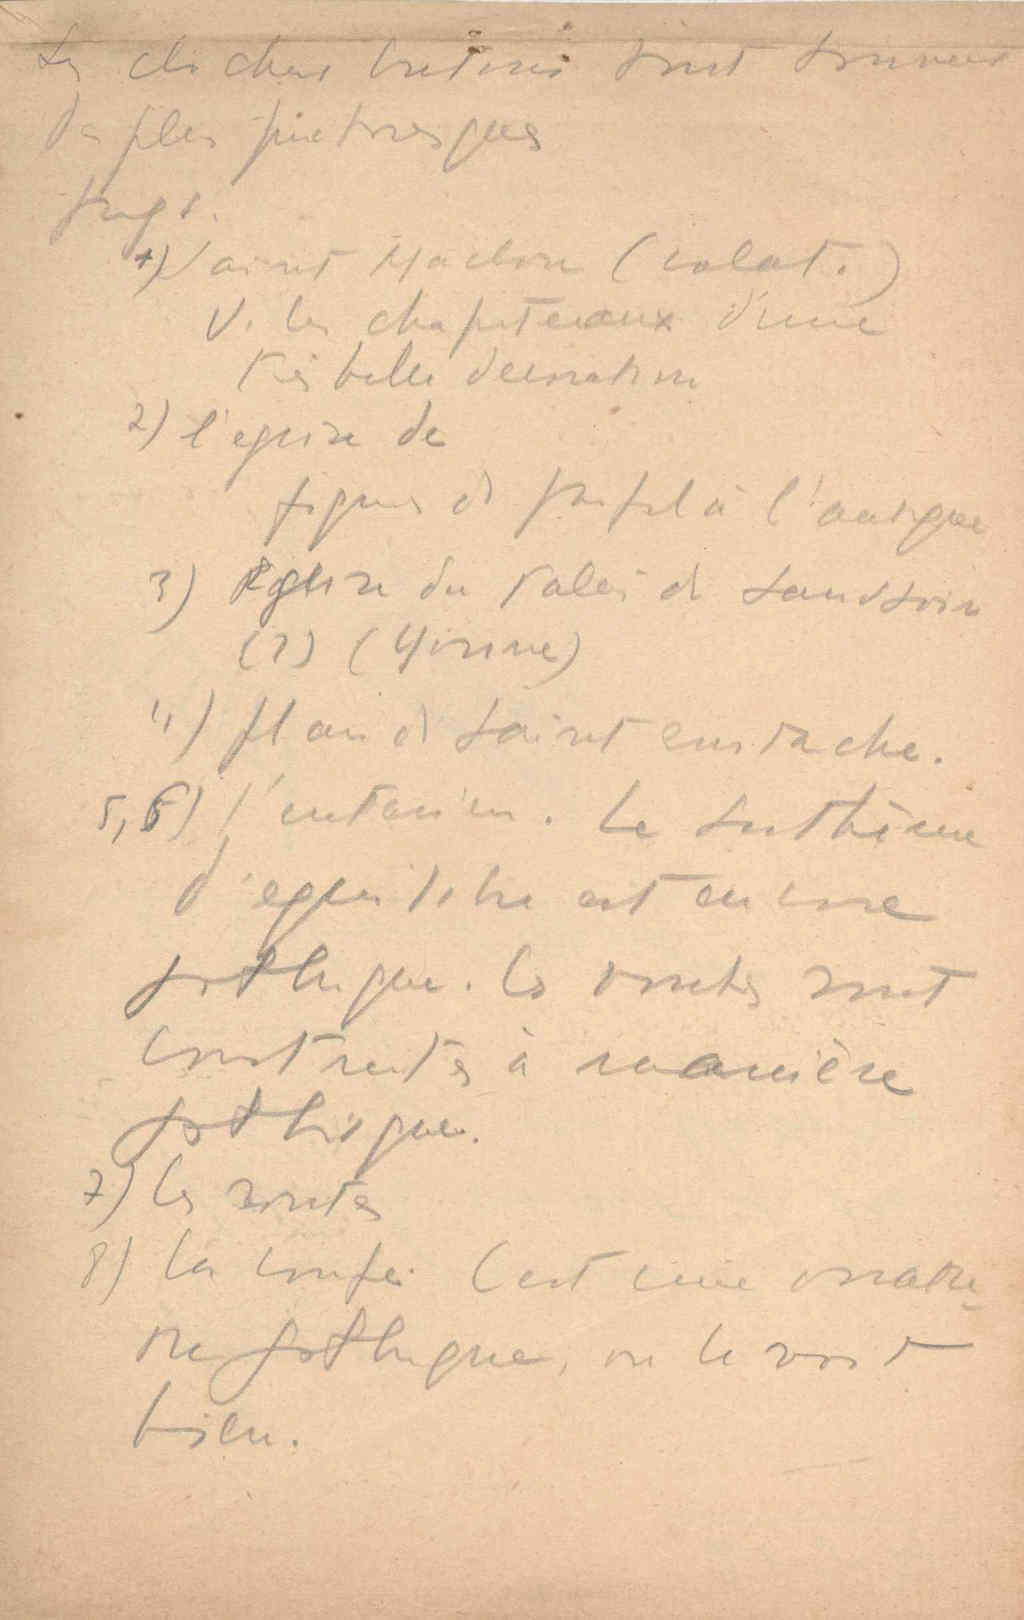 Les clochers bretons sont souvent
des plus pittoresques
1) Saint Maclou (
V. les chapiteaux d'une
très belle décoration
2) l'église de
figures de profil à l'antique
3) Eglise du de
(?) (Yonne)
4) plan de Saint Eustache.
5, 6) l'intérieur. Le système
d'équilibre est encore
gothique. Les voutes sont
construites à manière
gothique.
7) les voutes
8) la coupe. C'est une
gothique, on le voit
bien.